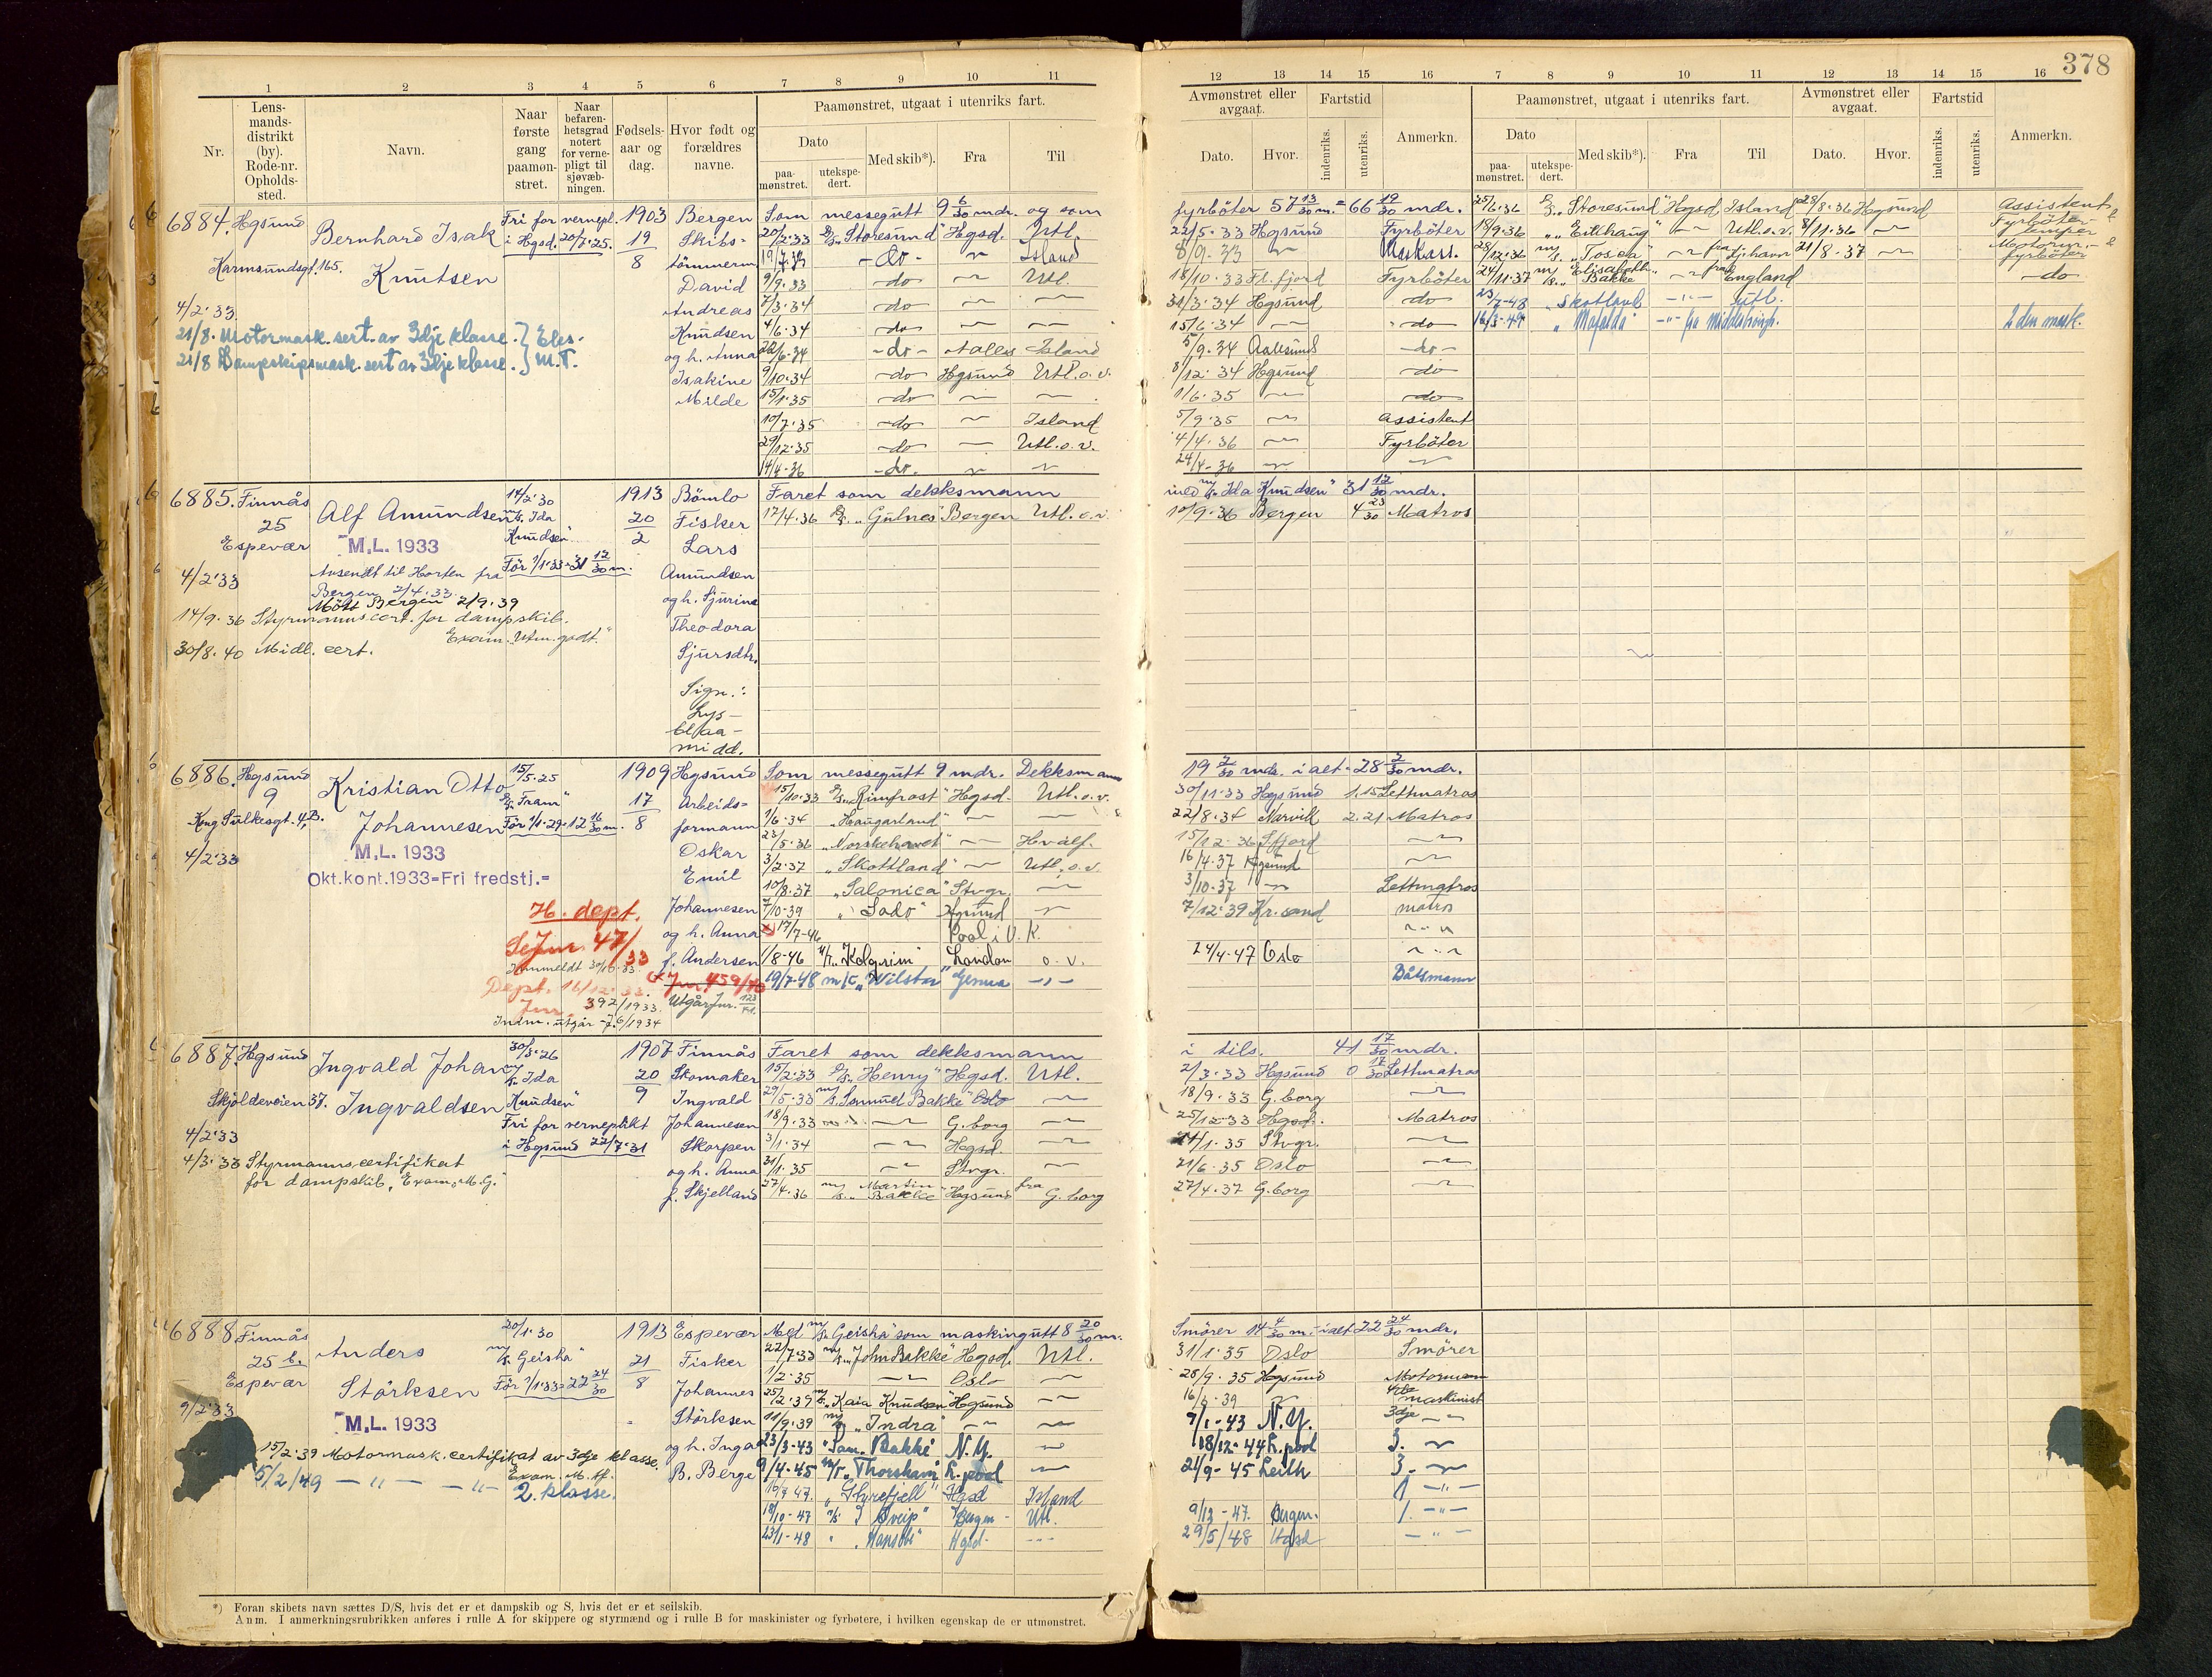 378
1 2 3 4 5 6 7 8 9 10 11
Nr.
Lens-
mands-
distrikt
(by).
Rode-nr.
Opholds-
sted.
Navn.
Naar
første
gang
paamøn-
stret.
Naar
befaren-
hetsgrad
notert
for verne-
pligt til
sjøvæb-
ningen.
Fødsels-
aar og
dag.
Hvor født og
forældres
navne.
Paamønstret, utgaat i utenriks fart.
Dato
paa-
mønstret.
utekspe-
dert.
Med skib*).
Fra
Til
12 13 14 15 16 7 8 9 10 11 12 13 14 15 16
Avmønstret eller
avgaat.
Dato.
Hvor.
Fartstid
indenriks.
utenriks.
Anmerkn.
Paamønstret, utgaat i utenriks fart.
Dato
paa-
mønstret.
utekspe-
dert.
Med skib*).
Fra
Til
Avmønstret eller
avgaat.
Dato.
Hvor.
Fartstid
indenriks.
utenriks.
Anmerkn.
6884. Hgsund
Karmsundsgt. 165.
4/2'33
Bernhard Isak
Knutsen
Fri for vernepl.
i Hgsd. 20/7'25.
1903
19/8
Bergen
Skibs-
tømmerm
David
Andreas
Knudsen
og h. Anna
Isakine
Milde
21/8. Motormask. sert. av 3dje klasse. } Eles-
21/8 Dampskipsmask. sert av 3dje klasse. } M.T.
Som messegutt 9 6/30 mdr. og som
20/2'33 D/S "Storesund" Hgsd. Utl.
-do- Island
9/9.33 -do- Utl.
7/3'34 -do-
4/6.34 -do-
22/6.34 -do- Aales Island
9/10.34 -do- Hgsund Utl.o.v.
15/1'35 -do-
10/7'35 -do- Island
29/12'35 -do- Utl.o.v.
14/4-36 -do-
fyrbøter 57 13/30 m. = 66 19/30 mdr.
22/5-33 Hgsund Fyrbøter
8/9-33
18/10.33 Fyrbøter
31/3'34 Hgsund -do-
15/6'34 -do-
5/9.34 Aalesund -do-
8/12'34 Hgsund -do-
1/6.35 -do-
5/9'35 Assistent
4/4.36 Fyrbøter
24/4-36
25/6.36 D/S "Storesund" Hgsd Island 28/8.36 Hgsund Assistent
18/9.36 Utl.o.v. 8/11.36 Fyrbøter
28/12'36 M/S "Tosca" fra 21/8.37
24/11.37 M/S "Elisabeth Bakke" fra England -do-
23/7-48 "Skotland" Utl.
16/3-49 "Mafalda" fra Middlesbrough. 2den mask.
6885. Finnås
25
Espevær
4/2'33
Alf Amundsen
M.L. 1933
Avsendt til Horten fra
Bergen 2/4.33.
Møtt Bergen 2/9.39
14/2'30
M/S. Ida
Knudsen"
Før 1/1'33=31 12/30 m.
1913
20/2
Bømlo
Fisker
Lars
Amundsen
og h. Sjurina
Theodora
Sjursdtr.
Sign.:
Lys-
blaa-
midd.
14/9.36 Styrmannscert. for dampskib.
Exam. "Utm. godt."
30/8.40 Midl. cert.
Faret som dekksmann
17/4.36 D/S. "Gulnes" Bergen Utl.o.v.
med M/S. "Ida Knudsen" 31 12/30 mdr.
10/9.36 Bergen 4 23/30 Matros
6886. Hgsund
9
Kong Sulkesgt. 4,B.
4/2'33
Kristian Otto
Johannesen
M.L. 1933
Okt.kont.1933=Fri fredstj.=
15/5.25
D/S. "Fram"
Før 1/1.29=12 16/30 m.
1909
17/8
Hgsund
Arbeids-
formann
Oskar
Emil
Johannesen
og h. Anna
f. Andersen
H. dept.
Se Jnr. 47/33
Dept. 16/12.33.
Jnr. 392/1933.
Jnr. 459/40
Utgår Jnr.
Som messegutt 9 mdr. Dekksmann
15/10.33 D/S. "Rimfrost" Hgsd. Utl.o.v.
1/6.34 "Haugarland"
23/5.36 "Norskehavet" Hvalf.
3/2'37 "Skottland" Utl.o.v.
10/8.37 "Salonica" Stvgr.
7/10-39 "Lado" Hgsund
17/7-46 Pool i U.K.
1/8-46 M/T. "Kolgrim" London o.v.
19/7-48 "Wilstar" Genua
19 2/30 mdr. i alt = 28 2/30 mdr.
30/11'33 Hgsund 1.15 Lettmatros
22/8.34 Narvik 2.21 Matros
15/12.36
16/4.37 Hgsund
3/10.37 Lettmatros
7/12'39 Kr.sand matros
24/4-47 Oslo
Båtsmann
6887. Hgsund
Skjoldeveien 37.
4/2'33
Ingvald Johan
Ingvaldsen
30/3'26
M/S. "Ida
Knudsen"
Fri for verneplikt
i Hgsund 22/7'31
1907
20/9
Finnås
Skomaker
Ingvald
Johannesen
Skorpen
og h. Anna
f. Skjelland
4/3'33 Styrmannscertifikat
for dampskib, Exam. M.G.
Faret som dekksmann
15/2'33 D/S. "Henry" Hgsd. Utl.
29/5.33 M/S. "Samuel Bakke" Oslo
18/9.33 G.borg
3/1'34 Hgsd.
31/1.35 Stvgr.
27/4.36 M/S. "Martin Bakke" Hgsund fra G.borg
i tils. 41 17/30 mdr.
2/3.33 Hgsund 0 17/30 Lettmatros
18/9.33 G.borg
25/12-33 Hgsd. Matros
1.35 Stvgr.
21/6.35 Oslo
27/4.37 G.borg
6888. Finnås
25 b.
Espevær
9/2'33
Anders
Størksen
M.L. 1933
20/1'30
M/S. "Geisha"
Før 1/1'33=22 24/30
1913
21/8
Espevær
Fisker
Johannes
Størksen
og h. Inga
B. Berge
15/2'39 Motormask. certifikat av 3dje klasse.
Exam. M.tf.
5/2/49 -"- -"- 2. klasse.
Med M/S. "Geisha" som maskingutt 8 20/30 m.
22/7'33 M/S. "John Bakke" Hgsd. Utl.
1/2'35 Oslo
25/2'39 M/S. "Kaia Knudsen" Hgsund
11/9.39 "Indra"
23/3-43 "Sam. Bakke" N.Y.
9/4-45 M/T. "Thorshavn" L.pool
"Gyrefjell" Hgsd Island
18/10-47 "Sveip" Bergen Utl.
23/1-48 Hgsd.
Smører 14 4/30 m. = i alt 22 24/30 mdr.
31/1'35 Oslo Smører
28/9.35 Hgsund Motormann
16/ .39 maskinist
9/1-43 N.Y. 3dje
18/12-44 L.pool 3.
21/9-45 Leith 3.
1 -"-
9/12-47. Bergen. 1. -"-
29/5/48 Hgsd -"-
*) Foran skibets navn sættes D/S, hvis det er et dampskib og S, hvis det er et seilskib.
Anm. I anmerkningsrubrikken anføres i rulle A for skippere og styrmænd og i rulle B for maskinister og fyrbøtere, i hvilken egenskap de er utmønstret.